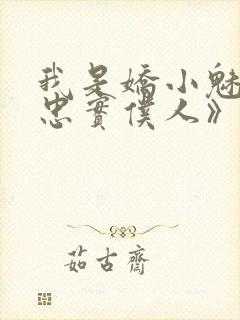 我是嬌小魅
忠實僕人》
茹古齋